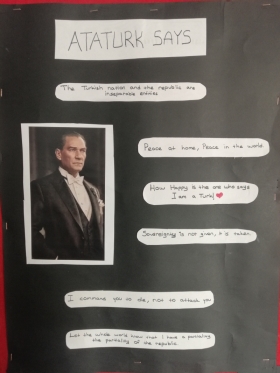 ATATURK SAYS
The Turkish nation and the republic are
inseparable entities
Peace at home, Peace in the world.
How Happy is the one who says
I am a Turk! ❤
Sovereignty is not given, it is taken.
I command you to die, not to attack you
Let the whole world know that I have a partiality
the partiality of the republic